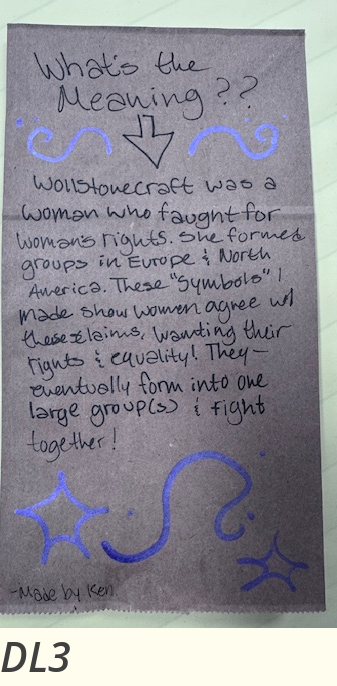 What's the
Meaning??
Wollstonecraft was a
woman who faught for
woman's rights. She formed
groups in Europe & North
America. These "Symbols" I
made show women agree w/
these claims, wanting their
rights & equality! They—
eventually form into one
large group(s) & fight
together!
-Made by Ken
DL3